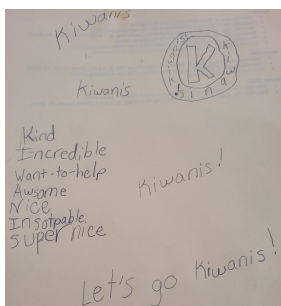 Kiwanis
K
Kiwanis
Kind
Incredible
Want-to-help
Awsome
Nice
Insotpable
Super nice
Kiwanis!
Let's go Kiwanis!